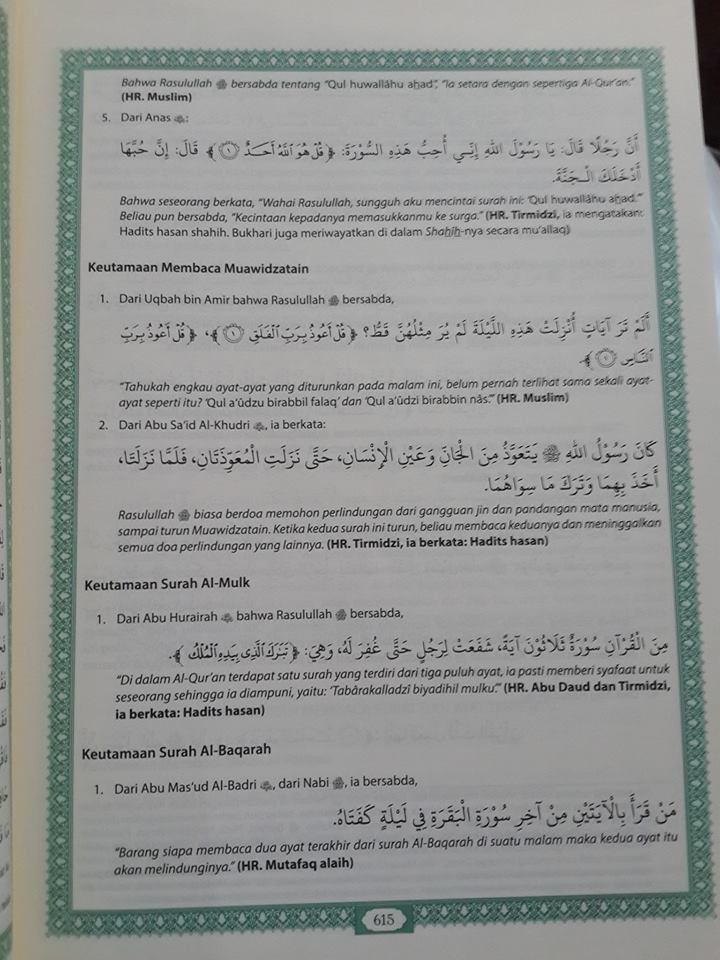 Bahwa Rasulullah ﷺ bersabda tentang "Qul huwallâhu ahad", "Ia setara dengan sepertiga Al-Qur'an."
(HR. Muslim)
5. Dari Anas :
أَنَّ رَجُلًا قَالَ: يَا رَسُوْلَ اللهِ إِنِّي أُحِبُّ هَذِهِ السُّوْرَةَ: ﴿ قُلْ هُوَ ٱللَّهُ أَحَدٌ ۝١ ﴾ قَالَ: إِنَّ حُبَّهَا
أَدْخَلَكَ الْجَنَّةَ.
Bahwa seseorang berkata, "Wahai Rasulullah, sungguh aku mencintai surah ini: 'Qul huwallâhu ahad."
Beliau pun bersabda, "Kecintaan kepadanya memasukkanmu ke surga." (HR. Tirmidzi, ia mengatakan:
Hadits hasan shahih. Bukhari juga meriwayatkan di dalam Shahîh-nya secara mu'allaq)
Keutamaan Membaca Muawidzatain
1. Dari Uqbah bin Amir bahwa Rasulullah ﷺ bersabda,
أَلَمْ تَرَ آيَاتٍ أُنْزِلَتْ هَذِهِ اللَّيْلَةَ لَمْ يُرَ مِثْلُهُنَّ قَطُّ؟ ﴿ قُلْ أَعُوذُ بِرَبِّ ٱلْفَلَقِ ۝١ ﴾، ﴿ قُلْ أَعُوذُ بِرَبِّ
ٱلنَّاسِ ۝١ ﴾.
"Tahukah engkau ayat-ayat yang diturunkan pada malam ini, belum pernah terlihat sama sekali ayat-
ayat seperti itu? 'Qul a'ûdzu birabbil falaq' dan 'Qul a'ûdzi birabbin nâs.'" (HR. Muslim)
2. Dari Abu Sa'id Al-Khudri , ia berkata:
كَانَ رَسُوْلُ اللهِ ﷺ يَتَعَوَّذُ مِنَ الْجَانِّ وَعَيْنِ الْإِنْسَانِ، حَتَّى نَزَلَتِ الْمُعَوِّذَتَانِ، فَلَمَّا نَزَلَتَا،
أَخَذَ بِهِمَا وَتَرَكَ مَا سِوَاهُمَا.
Rasulullah ﷺ biasa berdoa memohon perlindungan dari gangguan jin dan pandangan mata manusia,
sampai turun Muawidzatain. Ketika kedua surah ini turun, beliau membaca keduanya dan meninggalkan
semua doa perlindungan yang lainnya. (HR. Tirmidzi, ia berkata: Hadits hasan)
Keutamaan Surah Al-Mulk
1. Dari Abu Hurairah bahwa Rasulullah ﷺ bersabda,
مِنَ الْقُرْآنِ سُوْرَةٌ ثَلَاثُوْنَ آيَةً، شَفَعَتْ لِرَجُلٍ حَتَّى غُفِرَ لَهُ، وَهِيَ: ﴿ تَبَـٰرَكَ ٱلَّذِى بِيَدِهِ ٱلْمُلْكُ ﴾.
"Di dalam Al-Qur'an terdapat satu surah yang terdiri dari tiga puluh ayat, ia pasti memberi syafaat untuk
seseorang sehingga ia diampuni, yaitu: 'Tabârakalladzî biyadihil mulku.'" (HR. Abu Daud dan Tirmidzi,
ia berkata: Hadits hasan)
Keutamaan Surah Al-Baqarah
1. Dari Abu Mas'ud Al-Badri , dari Nabi ﷺ, ia bersabda,
مَنْ قَرَأَ بِالْآيَتَيْنِ مِنْ آخِرِ سُوْرَةِ الْبَقَرَةِ فِي لَيْلَةٍ كَفَتَاهُ.
"Barang siapa membaca dua ayat terakhir dari surah Al-Baqarah di suatu malam maka kedua ayat itu
akan melindunginya." (HR. Mutafaq alaih)
615